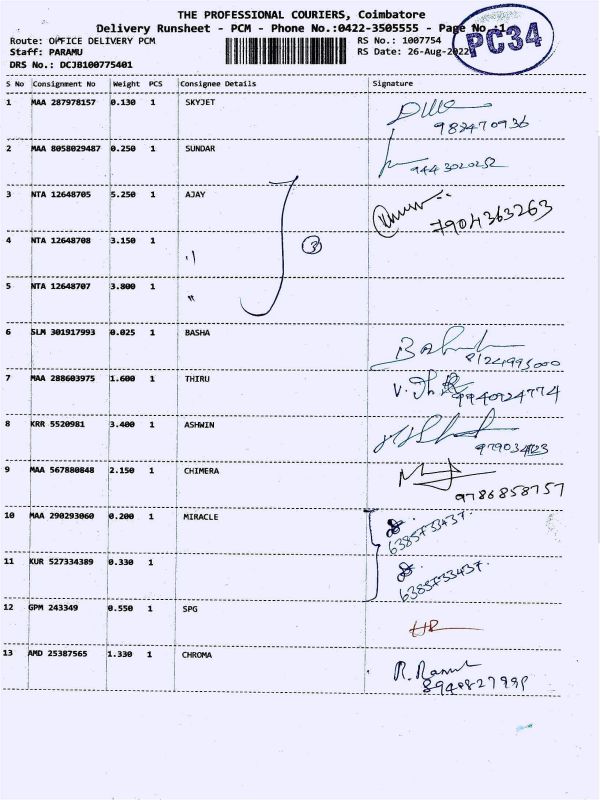 THE PROFESSIONAL COURIERS, Coimbatore
Delivery Runsheet - PCM - Phone No.:0422-3505555 - Page No.:1
Route: OFFICE DELIVERY PCM RS No.: 1007754
Staff: PARAMU RS Date: 26-Aug-2022
DRS No.: DCJB100775401
PC34
S No Consignment No Weight PCS Consignee Details Signature
1 MAA 287978157 0.130 1 SKYJET
2 MAA 8058029487 0.250 1 SUNDAR
9443020252
3 NTA 12648705 5.250 1 AJAY
7904363263
4 NTA 12648708 3.150 1 " 3
5 NTA 12648707 3.800 1 "
6 SLM 301917993 0.025 1 BASHA
8124995000
7 MAA 288603975 1.600 1 THIRU
9940924774
8 KRR 5520981 3.400 1 ASHWIN
9 MAA 567880848 2.150 1 CHIMERA
9786858757
10 MAA 290293060 0.200 1 MIRACLE
6385733437.
11 KUR 527334389 0.330 1
6385733437.
12 GPM 243349 0.550 1 SPG
13 AMD 25387565 1.330 1 CHROMA